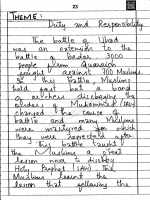 23
THEME:
Duty and Responsibility
The battle of Uhad
was an extension to the
battle of Badar. 3000
people from Quraish
fought against 700 Muslims.
In this battle, Muslims
held fast but
archers disobeying the
orders of Muhammad (SAW)
changed the course of
battle and many Muslims
were martyred for which
they were
This battle taught
the Muslims a great
lesson never to disobey
Holy Prophet (SAW) The
Muslims learnt the
lesson that following the